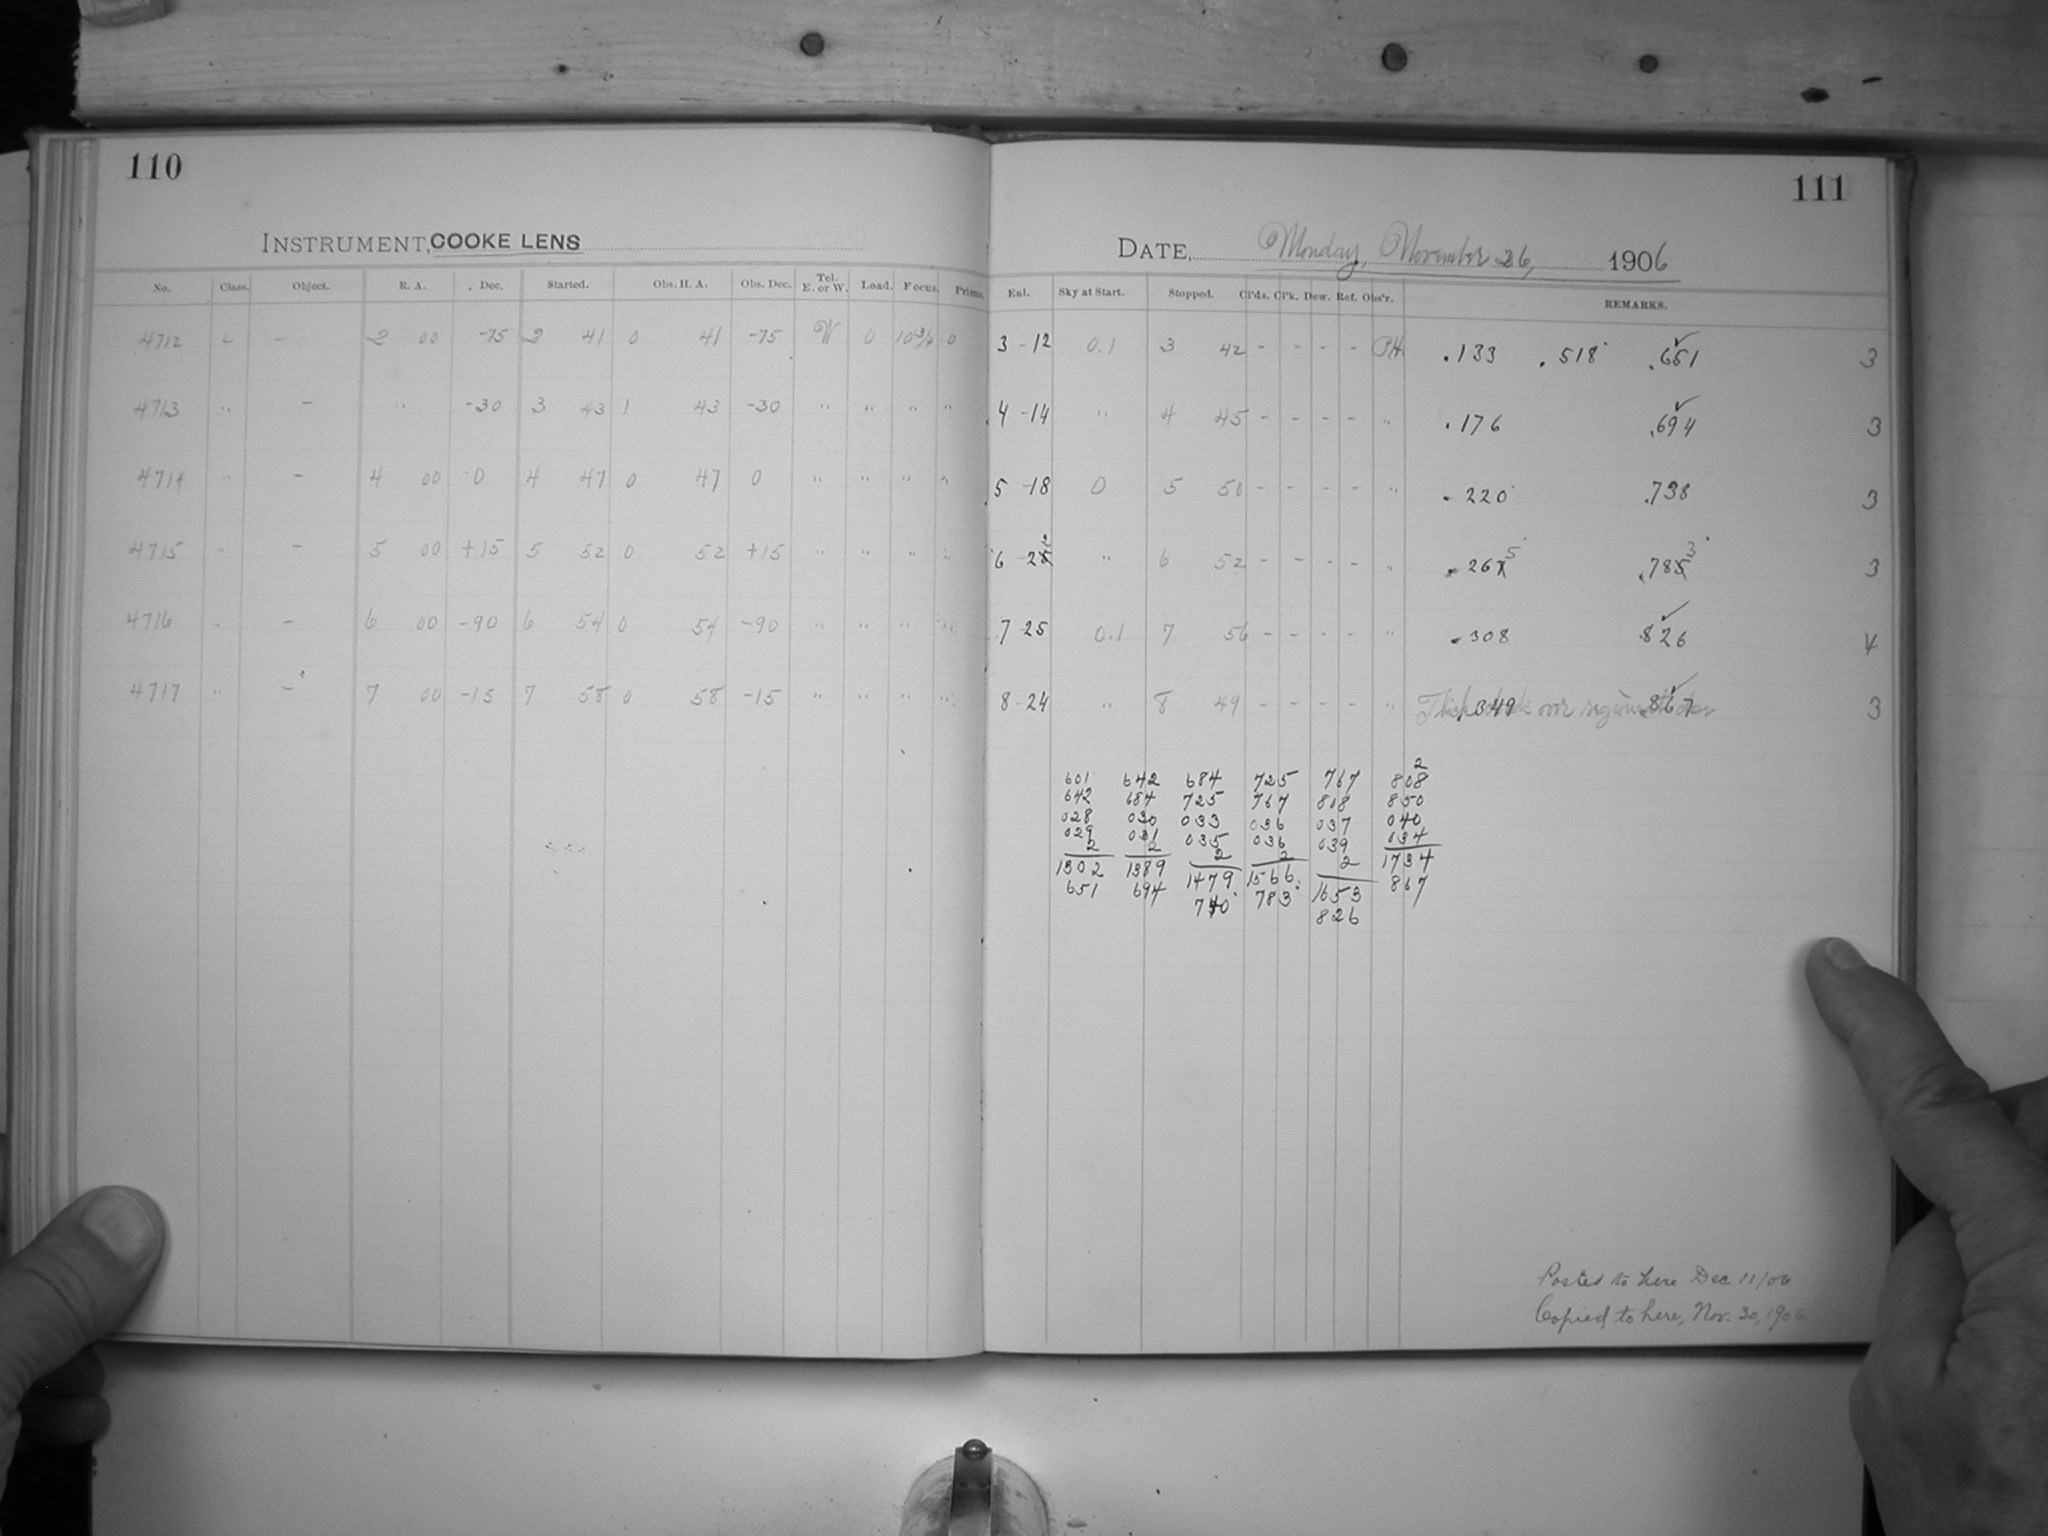 110
INSTRUMENT, COOKE LENS
No. Class. Object. R. A. Dec. Started. Obs. H. A. Obs. Dec. Tel. E. or W. Load. Focus. Prisms.
4712 L - 2 00 -75 2 41 0 41 -75 W 0 10 3/4 0
4713 " - " -30 3 43 1 43 -30 " " " "
4714 " - 4 00 0 4 47 0 47 0 " " " "
4715 " - 5 00 +15 5 52 0 52 +15 " " " "
4716 " - 6 00 -90 6 54 0 54 -90 " " " "
4717 " - 7 00 -15 7 58 0 58 -15 " " " "
111
DATE, Monday, November 26, 1906
Enl. Sky at Start. Stopped. Cl'ds. Cl'k. Dew. Ref. Obs'r. REMARKS.
3 - 12 0.1 3 42 - - - - PH .133 .518 .651 3
4 - 14 " 4 45 - - - - " .176 .694 3
5 - 18 0 5 50 - - - - " .220 .738 3
6 - 2 2 " 6 52 - - - - " .26 5 .78 3 3
7 25 0.1 7 56 - - - - " .308 .826 4
8 - 24 " 8 49 - - - - " Thick .349 over region .867 3
2
601 642 684 725 767 808
642 684 725 767 808 850
028 030 033 036 037 040
029 031 035 036 039 034
2 2 2 2 2
1302 1389 1479 1566 1653 1734
651 694 740 783 826 867
Posted to here Dec 11/06
Copied to here, Nov. 30, 1906